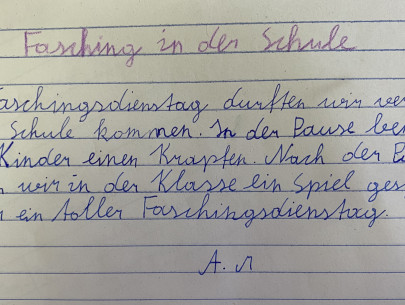 Fasching in der Schule
Faschingsdienstag durften wir ver
Schule kommen. In der Pause
Kinder einen Krapfen. Nach der
wir in der Klasse ein Spiel
ein toller Faschingsdienstag.
A.